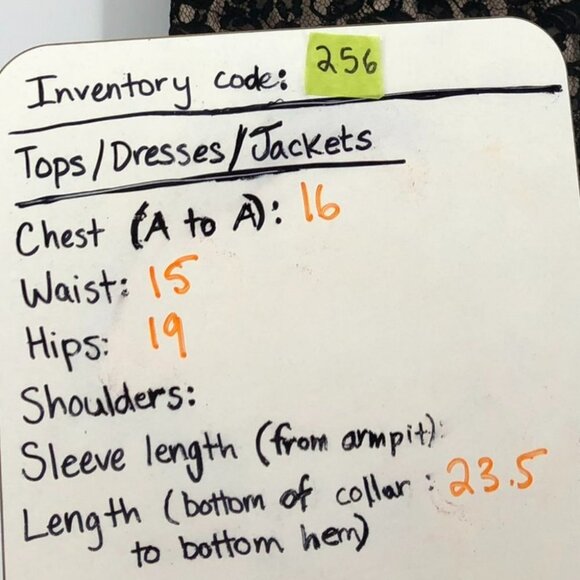 Inventory code: 256
Tops/Dresses/Jackets
Chest (A to A): 16
Waist: 15
Hips: 19
Shoulders:
Sleeve length (from armpit):
Length (bottom of collar : 23.5
to bottom hem)